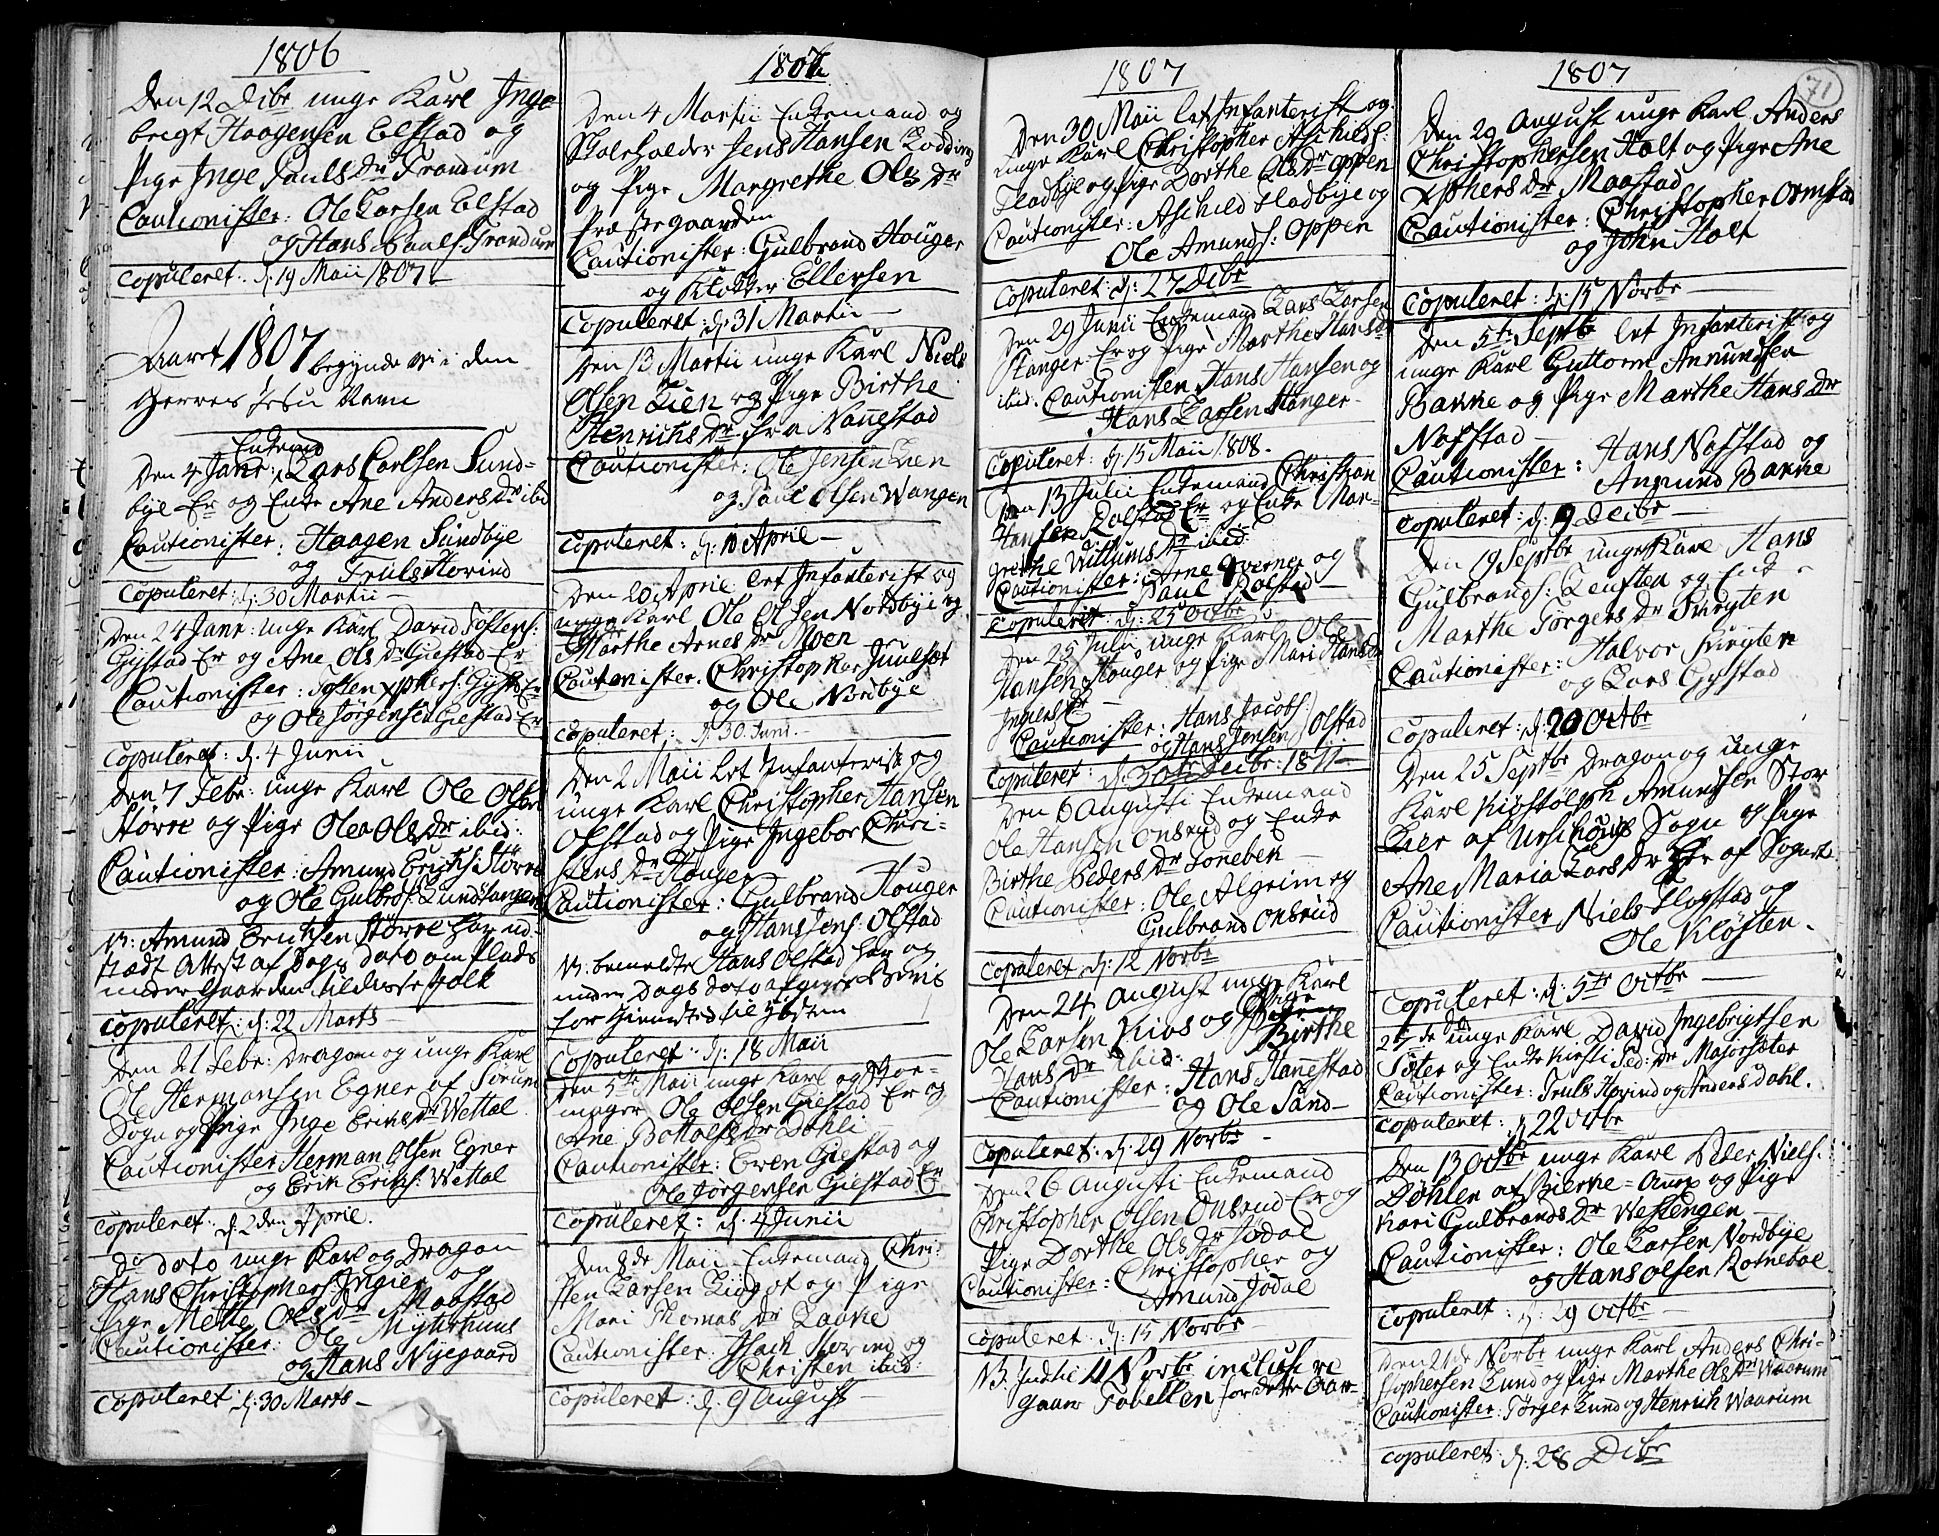 1806
Den 12 Dcbr unge Karl Inge-
brigt Haagensen Elstad og
Pige Inge Pauls Dr Trandum
Cautionister: Ole Larsen Elstad
og Hans Pauls: Trandum
Copuleret: d: 19 Maii 1807
Aaret 1807 begynde vi i den
Herres Jesu Navn
Enkemd
Den 4 Janr: Lars Carlsen Sund-
bye Er og Enke Ane Anders Dr ibid
Cautionister: Haagen Sundbye
og Truls Hovind
Copuleret: d: 30 Martii
Den 24 Janr: unge Karl David Tostens:
Gystad Er og Ane Ols Dr Giestad Er
Cautionister: Tosten Xphers: Gyst: Er
og Ole Jörgensen Giestad Er
Copuleret: d: 4 Junii
Den 7 Febr: unge Karl Ole Olsen
Större og Pige Olea Ols Dr ibid:
Cautionister: Amund Erichs: Större
og Ole Gulbrs: Lundstangen
N: Amund Erichsen Större har ud-
stædt Attest af Dags dato om Plads
under Gaarden til disse folk
Copuleret: d: 22 Marts
Den 21 Febr: Dragon og unge Karl
Ole Hermansen Egner af Sörum
Sogn og Pige Inge Eriks Dr Wettal
Cautionister Herman Olsen Egner
og Erik Eriks: Wettal
Copuleret: d: 2den Aprie.
Do dato unge Karl og Dragon
Hans Christophers: Ingier og
Pige Mette Ols Dr Maastad
Cautionister: Ole Myhrhuus
og Hans Nygaard
Copuleret: d: 30 Marts
1807
Den 4 Martii Enkemand og
Skoleholder Jens Hansen Kodding
og Pige Margrethe Ols Dr
Præstegaarden
Cautionister: Gulbrand Houger
og Klokker Ellersen
Copuleret: d: 31 Martii
Den 13 Martii unge Karl Niels
Olsen Lien og Pige Birthe
Henrichs Dr fra Nannestad
Cautionister: Ole Jensen Lien
og Paul Olsen Wangen
Copuleret: d: 10 April
Den 20 April let Infanterist og
unge Karl Ole Olsen Nordbye og
Marthe Arnes Dr Moen
Cautionister: Christopher Juulset
og Ole Nordbye
Copuleret: d: 30 Juni
Den 2 Maii let Infanterist og
unge Karl Christopher Hansen
Olstad og Pige Ingebor Chri-
stens Dr Houger
Cautionister: Gulbrand Houger
og Hans Jens: Olstad
N: bemeldte Hans Olstad har og
under Dags Dato afgivet Beviis
for Hiemsted til Ysten
Copuleret: d: 18 Maii
Den 5te Maii unge Karl og Skor-
mager Ole Olsen Giestad Er og
Ane Bottolfs Dr Dohli
Cautionister: Even Giestad og
Ole Jörgensen Giestad Er
Copuleret: d: 4 Junii
Den 8de Maii Enkemand Chri-
sten Larsen og Pige
Mari Thomas Dr Laake
Cautionister: Isach Hovind og
Christen ibid:
Copuleret: d: 9 August
1807
Den 30 Maii let Infanterist og
unge Karl Christopher Aschilds:
Fladbye og Pige Dorthe Ols Dr Oppen
Cautionister: Aschild Fladbye og
Ole Amunds: Oppen
Copuleret: d: 27 Dcbr
Den 29 Junii Enkemand Lars Larsen
Stanger Er og Pige Marthe Hans Dr
ibid: Cautionister Hans Hansen og
Hans Larsen Stanger
Copuleret: d: 15 Maii 1808.
Den 13 Julii Enkemand Christian
Hansen Rolstad Er og Enke Mar-
grethe Willums Dr ibid:
Cautionister: Arne Qverner og
Paul Rolstad
Copuleret: d: 25 Octbr
Den 25 Julii unge Karl Ole
Hansen Houger og Pige Mari Hans Dr
Ingiers Er
Cautionister: Hans Jacobs:
og Hans Jensen Olstad
Copuleret: d: 30te Dcibr: 1811
Den 6 Augusti Enkemand
Ole Hansen Onsrud og Enke
Birthe Peders Dr Foneben
Cautionister: Ole Algrim og
Gulbrand Onsrud
Copuleret d: 12 Novbr
Den 24 August unge Karl
Ole Larsen Kios og Pige
Birthe
Hans Dr ibid:
Cautionister: Hans Hanestad
og Ole Sand
Copuleret: d: 29 Novbr
Den 26 Augusti Enkemand
Christopher Olsen Onsrud Er og
Pige Dorthe Ols Dr Jodal
Cautionister: Christopher og
Amund Jodal
Copuleret: d: 15 Novbr
N3: Indtil 11 Novbr inclusive
gaaer Tabellen for dette Aar
1807
71
Den 29 August unge Karl Anders
Christophersen Holt og Pige Ane
Xphers Dr Maastad
Cautionister: Christopher Ormstad
og John Holt
Copuleret: d: 15 Novbr
Den 5te Septb let Infanterist og
unge Karl Guttorm Amundsen
Bakke og Pige Marthe Hans Dr
Nafstad
Cautionister: Hans Nafstad og
Amund Bakke
Copuleret: d: 9 Dcibr
Den 19 Septbr unge Karl Hans
Gulbrands: Leusten og Enke
Marthe Torgers Dr Svegten
Cautionister: Halvor Svegten
og Lars Gystad
Copuleret: d: 20 Octbr
Den 25 Septbr Dragon og unge
Karl Kiöstolph Amundsen Stor
Kier af Urschougs Sogn og Pige
Ane Maria Lars Dr af Sognet
Cautionister Niels Flogstad og
Ole Klöften.
Copuleret: d: 5te Octbr
27de do unge Karl David Ingebrigtsen
Soter og Enke Kirsti Ped: Dr Majorsæter
Cautionister: Truls Hovind og Anders Dahl.
Copuleret: d 22 Octbr
Den 13 Octbr unge Karl Peder Niels:
Döhlen af Bierke-Annex og Pige
Kari Gulbrands Dr Westengen
Cautionister: Ole Larsen Nordbye
og Hans Olsen Rotnebal
Copuleret: d: 29 Octbr
Den 21de Novbr unge Karl Anders Chri-
stophersen Lund og Pige Marthe Ols Dr Waarum
Cautionister: Törger Lund og Henrich Waarum
Copuleret: d: 28 Dcbr